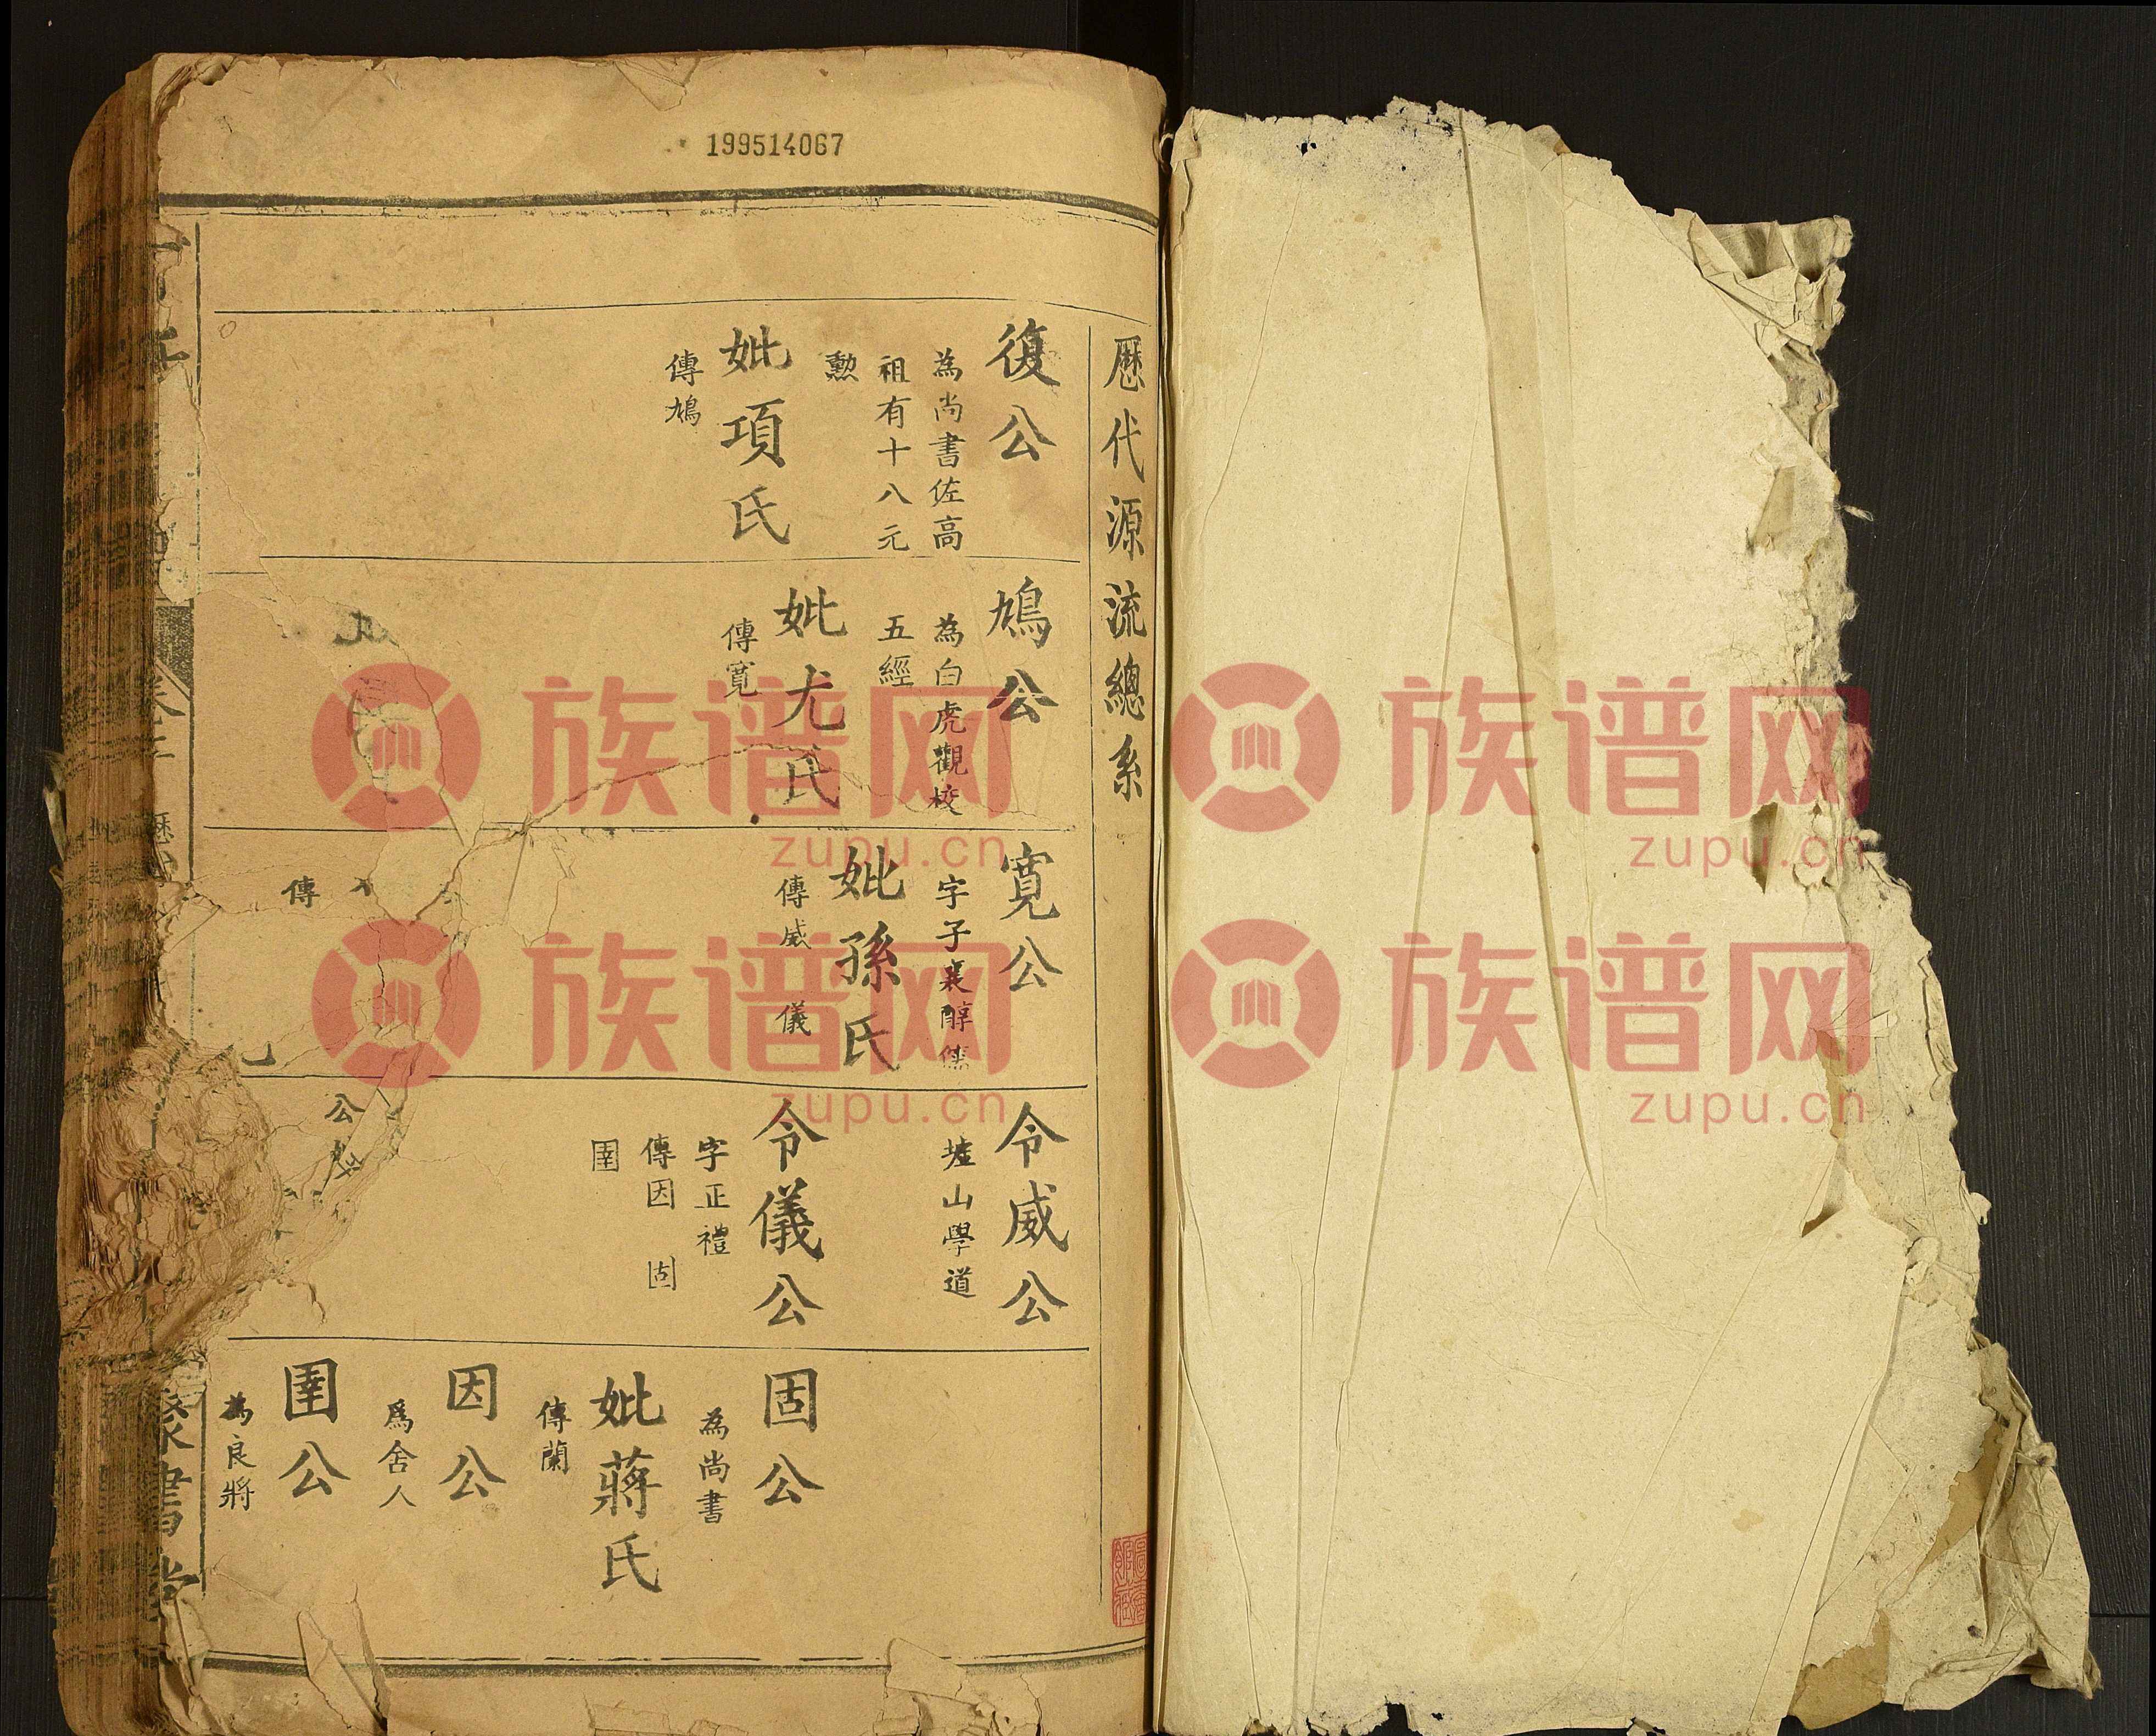 199514067
歷代源流總系
復公
為尚書佐高
祖有十八元
勲
妣項氏
傳鳩
鳩公
為白虎觀校
五經
妣尤氏
傳寛
寛公
字子襄醇儒
妣孫氏
傳威 儀
傳
令威公
墟山學道
令儀公
字正禮
傳因 固
圉
公
固公
為尚書
妣蔣氏
傳蘭
因公
爲舍人
圉公
為良將
書堂
族谱网
zupu.cn
族谱网
zupu.cn
族谱网
zupu.cn
族谱网
zupu.cn